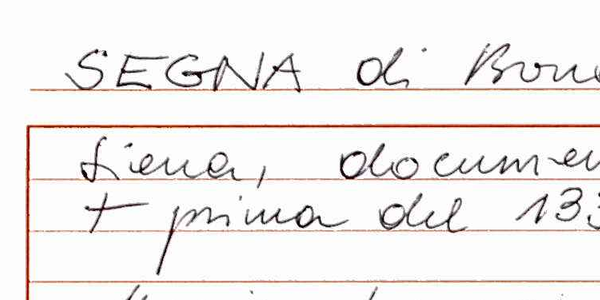 SEGNA di Bon
Siena, documen
+ prima del 133